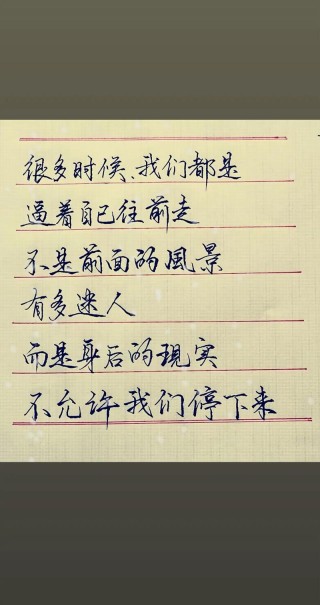 很多时候、我们都是
逼着自己往前走
不是前面的風景
有多迷人
而是身后的现实
不允许我们停下来